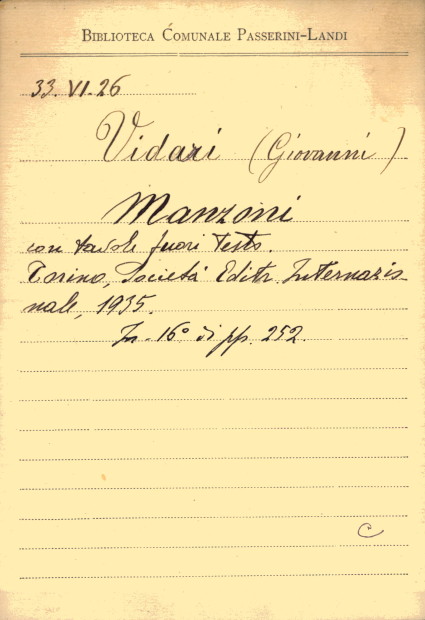 BIBLIOTECA COMUNALE PASSERINI-LANDI
33. VI. 26
Vidari (Giovanni)
Manzoni
con tavole fuori testo.
Torino, Società Editr. Internazio-
nale, 1935.
In-16° di pp. 252.
C